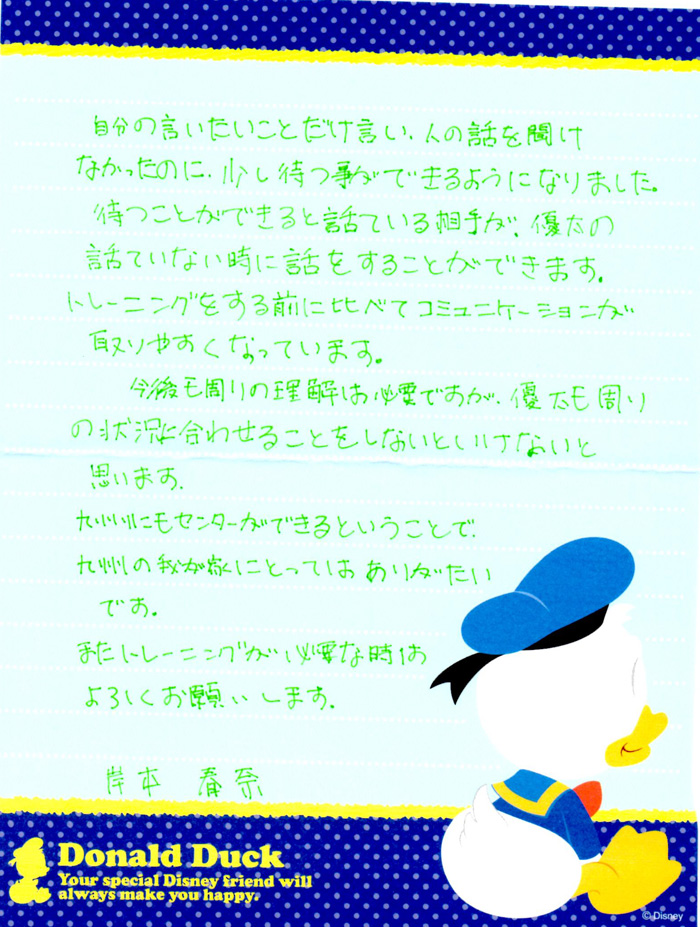 自分の言いたいことだけ言い、人の話を聞け
なかったのに、少し待つ事ができるようになりました。
待つことができると話ている相手が、優太の
話ていない時に話をすることができます。
トレーニングをする前に比べてコミュニケーションが
取りやすくなっています。
今後も周りの理解は必要ですが、優太も周り
の状況に合わせることをしないといけないと
思います。
九州にもセンターができるということで、
九州の我が家にとってはありがたい
です。
またトレーニングが必要な時は
よろしくお願いします。
岸本 春奈
Donald Duck
Your special Disney friend will
always make you happy.
© Disney